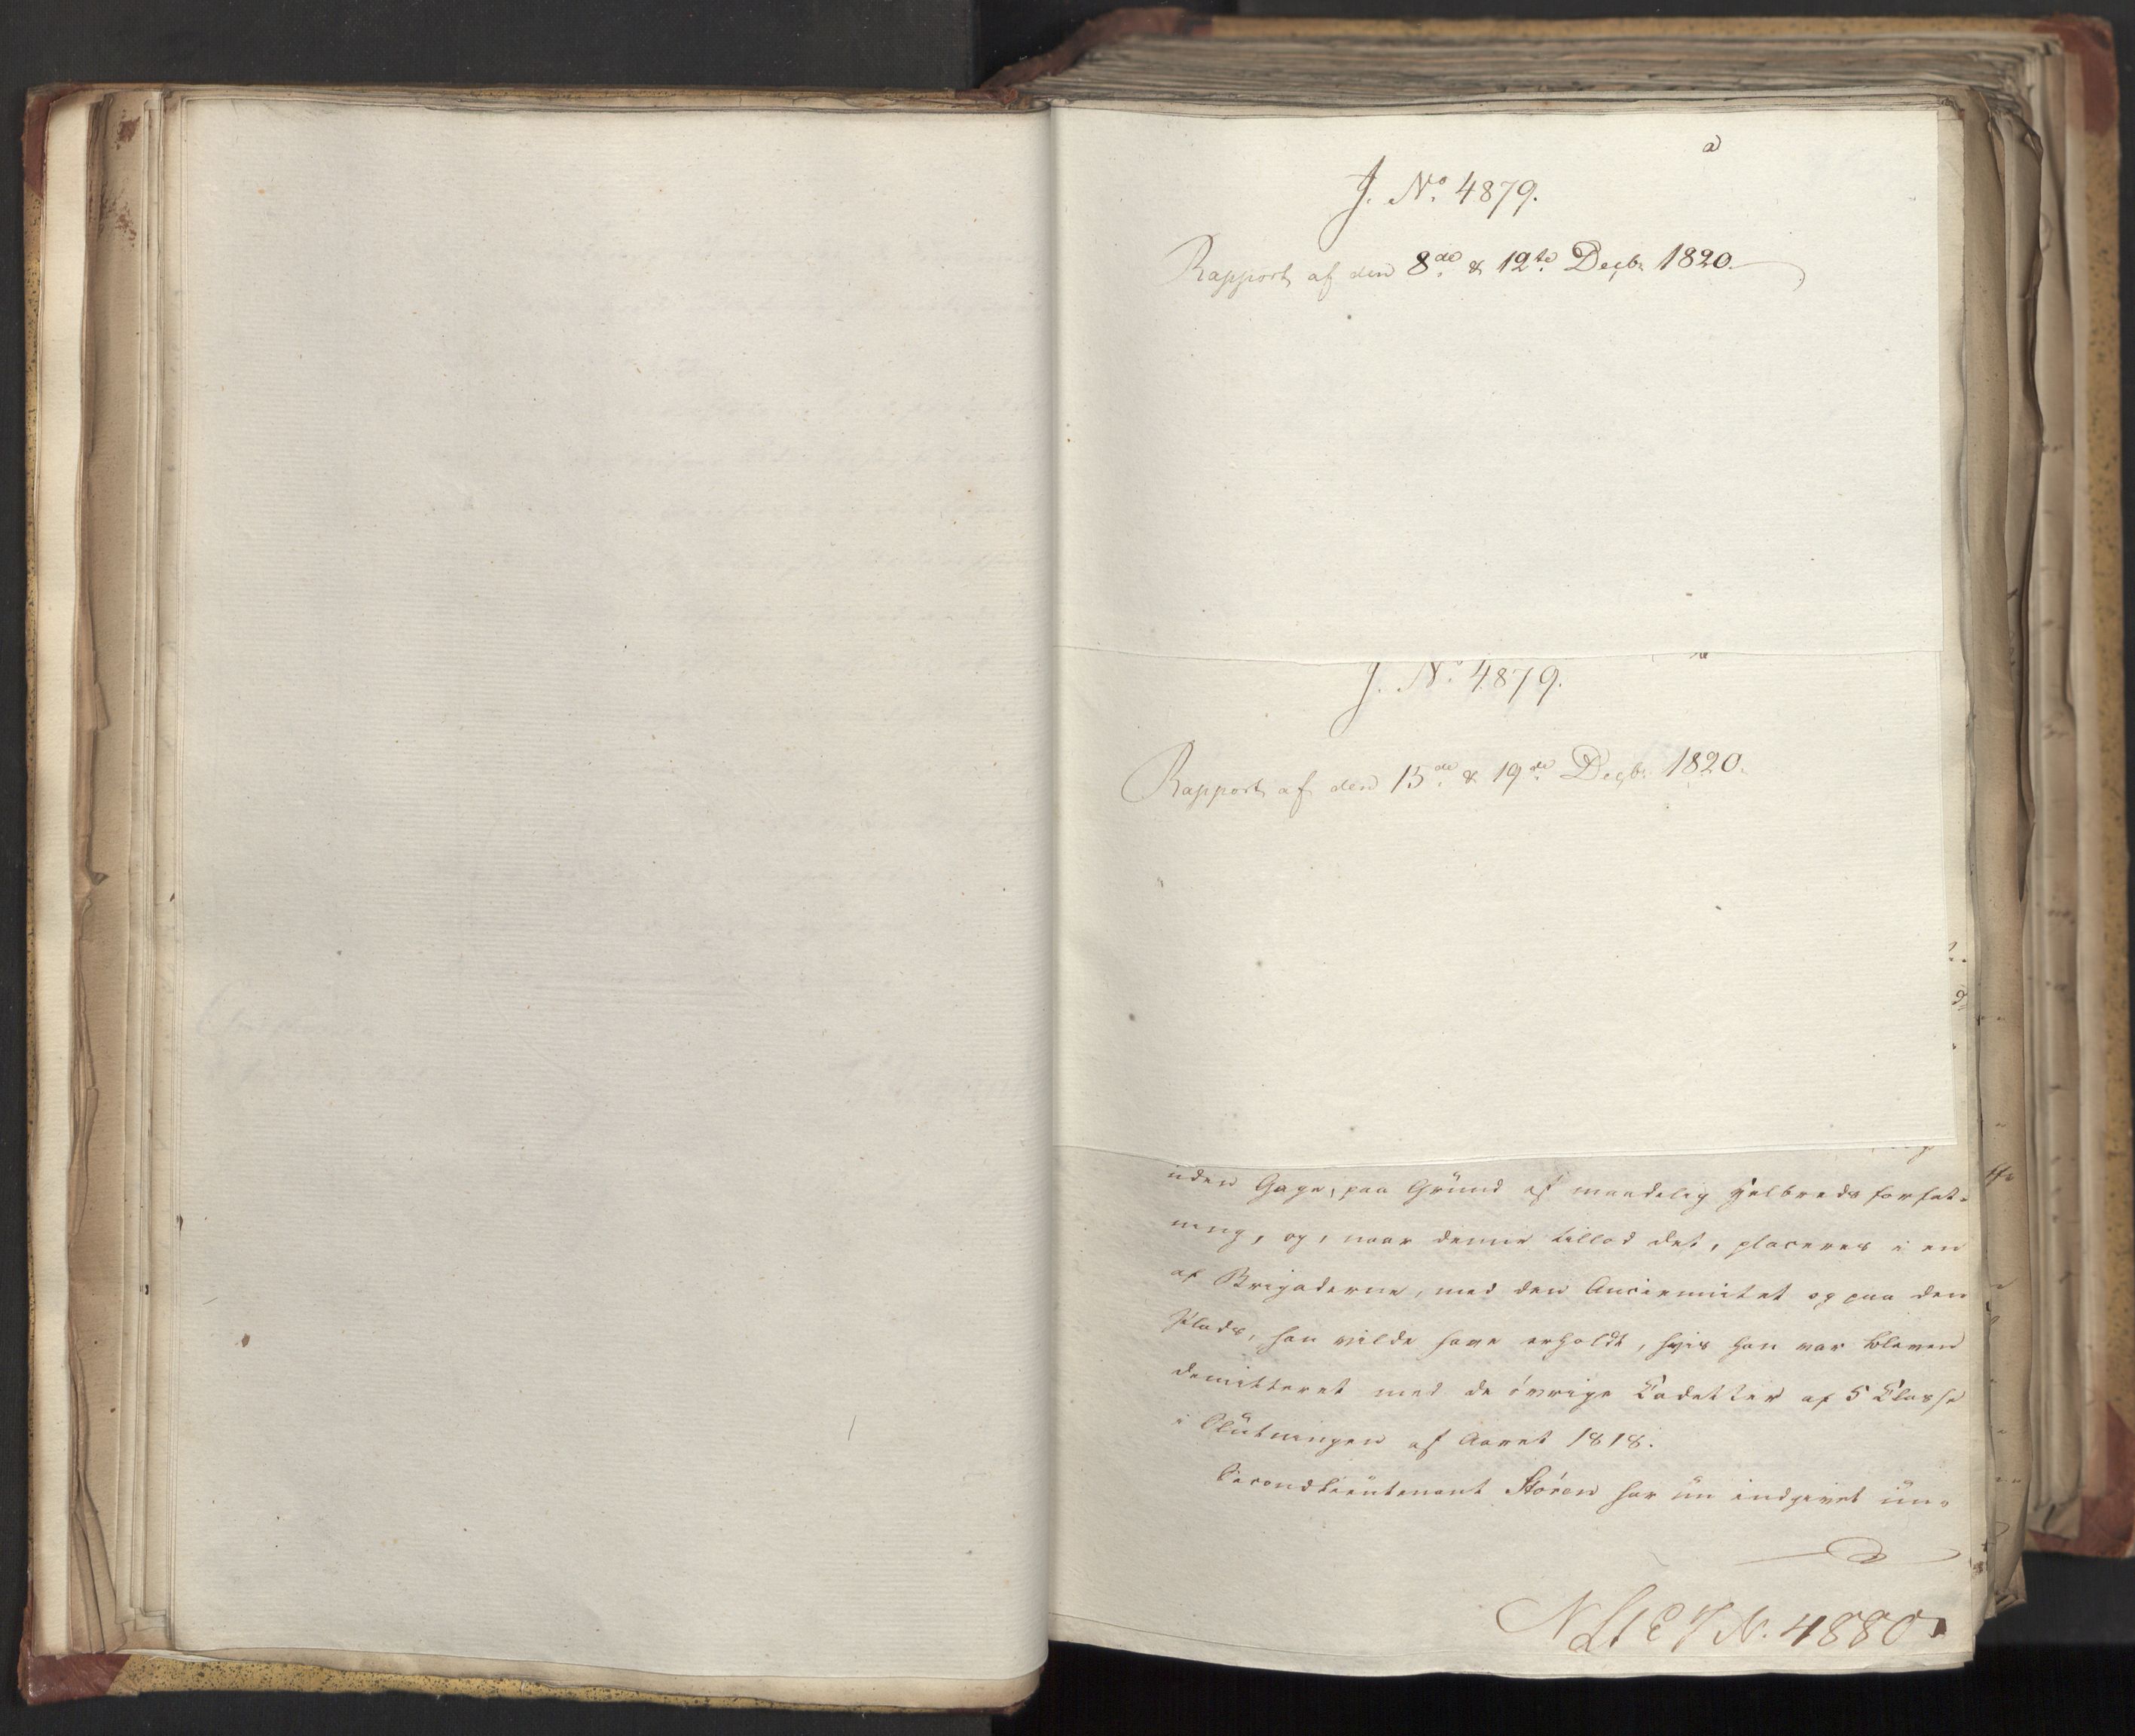 a
J. No. 4879.
Rapport af den 8de & 12te Decbr 1820.
J. No. 4879.
Rapport af den 15de & 19de Decbr 1820.
uden Gage, paa Grund af maadelig Helbredsforfat-
ning, og, naar denne tillod det, placeres i en
af Brigaderne, med den Anciennitet og paa den
Plads, han vilde have erholdt, hvis han var bleven
demitteret med de övrige Cadetter af 5 Classe
i Slutningen af Aaret 1818.
Secondlieutenant Stören har nu indgivet un-
J N. 4880